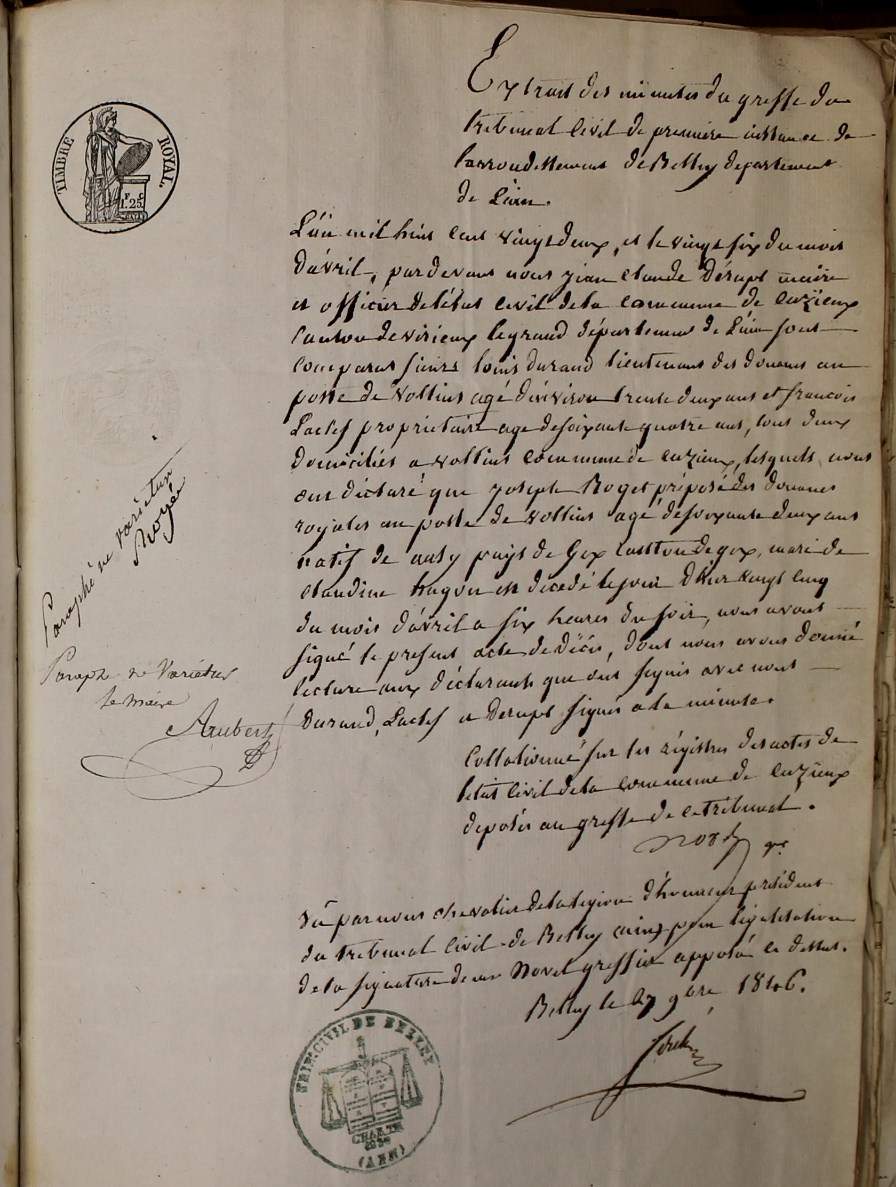 TIMBRE ROYAL.
1.25
Extrait des minutes du greffe du
tribunal Civil de première instance de
l'arrondissement de Belley département
de L'ain.
L'an mil huit cent vingt deux, et le vingt six du mois
d'avril, pardevant nous jean Claude maire
et officier de l'état civil de la commune de Cuzieux
Canton de virieux legrand département de L'ain sont
comparus louis durand lieutenant des douanes au
poste de vollins agé d'environ trente deux ans et francois
propriétaire agé de soixante quatre ans, tous deux
domiciliés a vollins commune de Cuzieux, lesquels nous
ont déclaré que joseph Roget préposé des douanes
royales au poste de vollins agé de soixante deux ans
natif de pays de Gex Canton de gex, marié de
Claudine est décédé le jour d'hier vingt cinq
du mois d'avril a six heures du soir, nous avons
signé le présent acte de décès, dont nous avons donné
lecture aux déclarants que ont signés avec nous
durand, a signés a la minute.
Collationné sur les régistres des actes de
l'état Civil de la commune de Cuzieux
déposés au greffe de ce tribunal.
Vû par nous chevalier de la légion d'honneur président
du tribunal Civil de Belley (ain) pour légalisation
de la signature de Mr greffier apposée ci dessus.
Belley le 27 9bre 1846.
Paraphé ne varietur
Paraphé ne Varietur
le maire
Aubert
TRIB. CIVIL DE BELLEY
CHARTE
1830
(AIN)